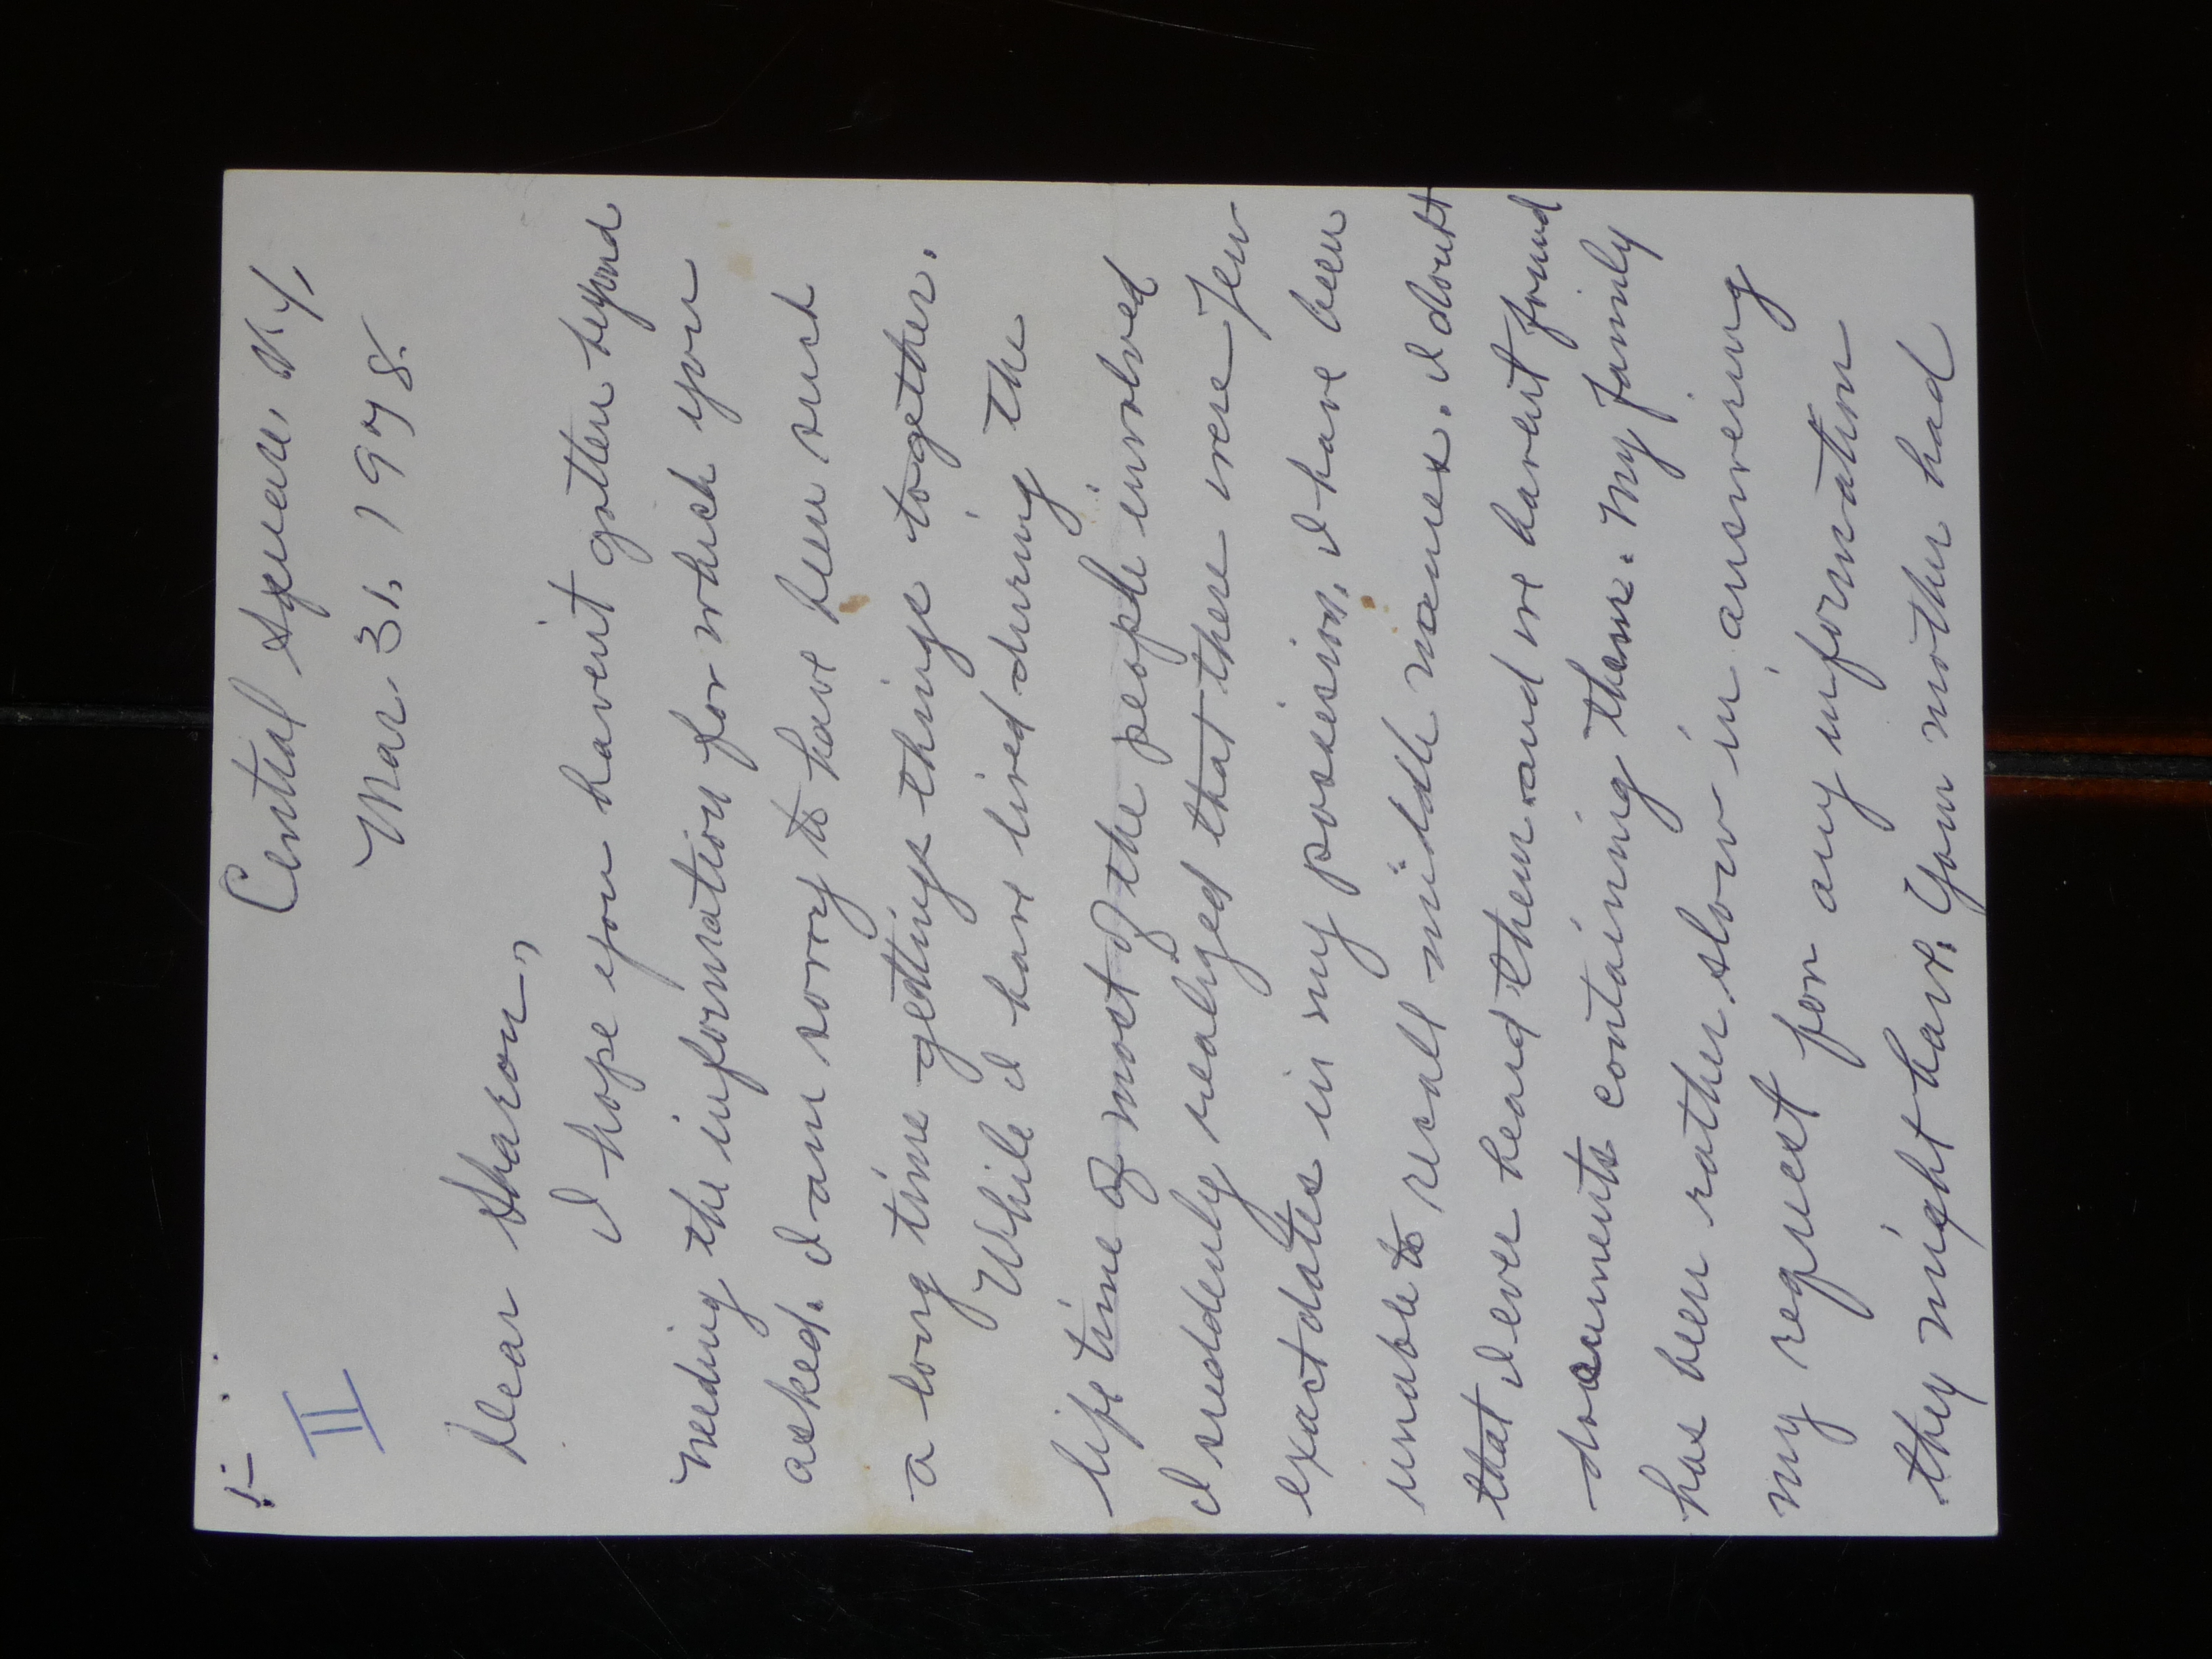 1-
II
Central Square, N.Y,
Mar. 31, 1978.
Dear Sharon,
I hope you havent gotten beyond
needing the information for which you
asked. I am sorry to have been such
a long time getting things together.
While I have lived during the
life time of most of the people involved
I suddenly realized that there were few
exact dates in my possession. I have been
unable to recall middle names. I doubt
that I ever heard them and we havent found
documents containing them. My family
has been rather slow in answering
my request for any information
they might have. Your mother had